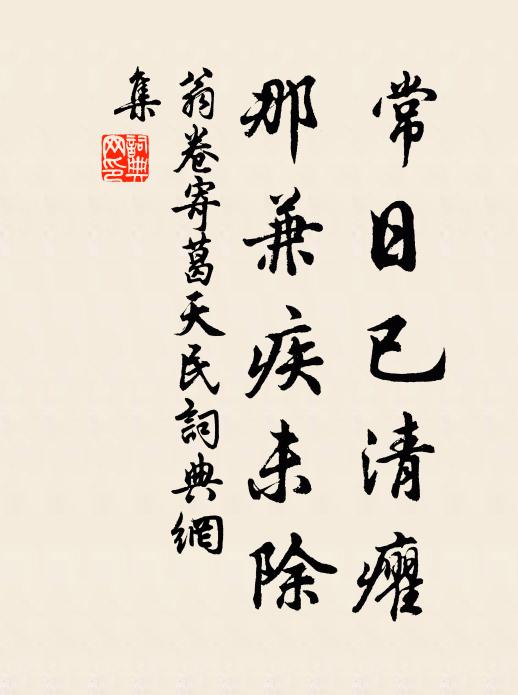 常日已清癯
那兼疾未除
翁卷寄葛天民詞典網
集
詞典
网印